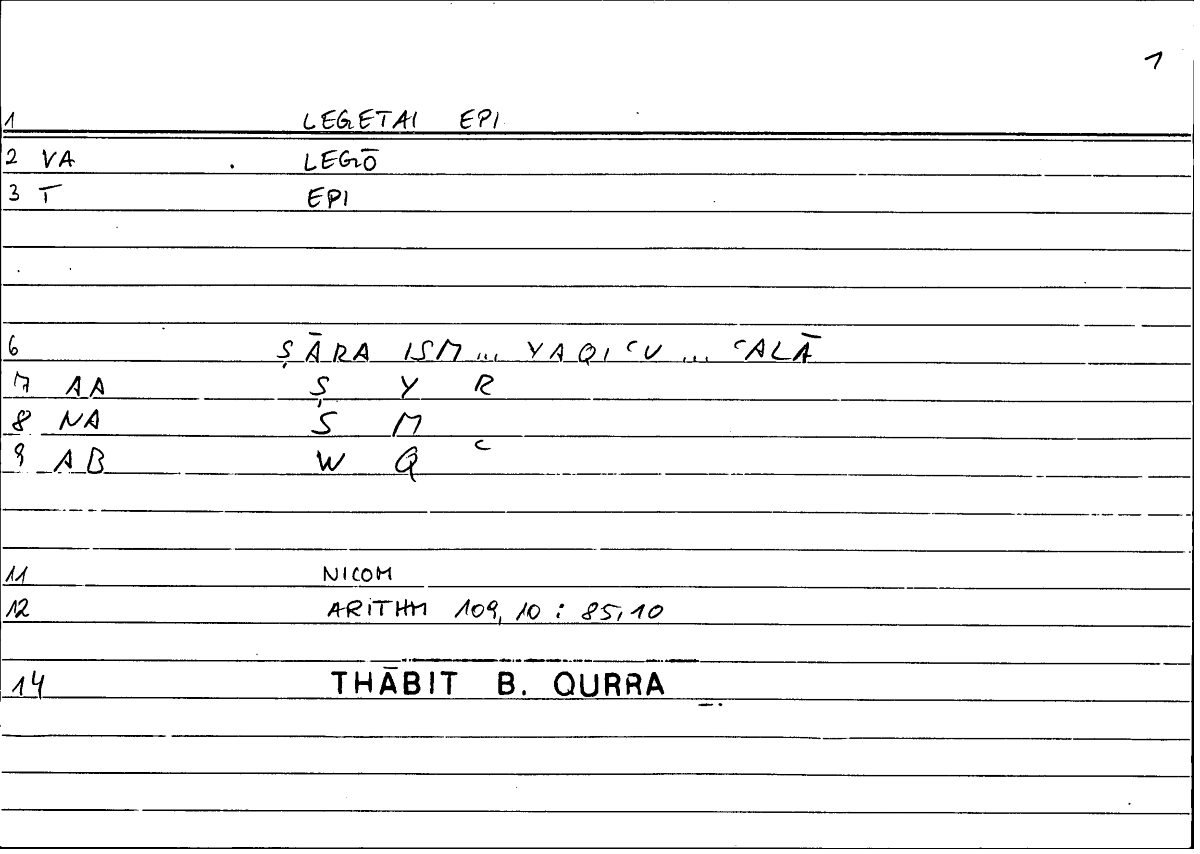 1
1 LEGETAI EPI
2 VA LEGŌ
3 T EPI
6 ṢĀRA ISM... YAQIʿU ... ʿALĀ
7 AA Ṣ Y R
8 NA S M
9 AB W Q ʿ
11 NICOM
12 ARITHM 109,10 : 85,10
14 THĀBIT B. QURRA